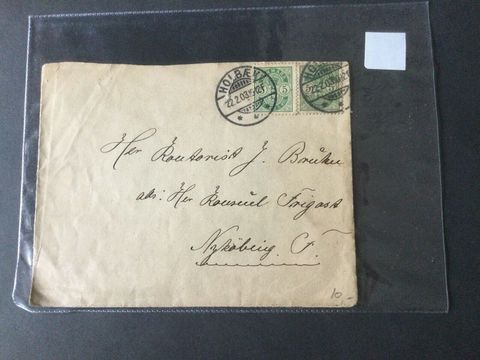 HOLBÆK
22.2.03
5
22.2.03
Her Kontorist J. Bruhn
adr: Her Konsul Frigast
Nykøbing F.
10,-